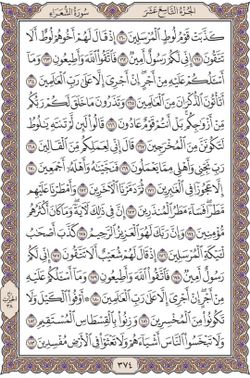 الجُزْءُ التَّاسِعَ عَشَرَ
سُورَةُ الشُّعَرَاءِ
كَذَّبَتْ قَوْمُ لُوطٍ الْمُرْسَلِينَ ١٦٠ إِذْ قَالَ لَهُمْ أَخُوهُمْ لُوطٌ أَلَا
تَتَّقُونَ ١٦١ إِنِّي لَكُمْ رَسُولٌ أَمِينٌ ١٦٢ فَاتَّقُوا اللَّهَ وَأَطِيعُونِ ١٦٣ وَمَا
أَسْـَٔلُكُمْ عَلَيْهِ مِنْ أَجْرٍ إِنْ أَجْرِيَ إِلَّا عَلَىٰ رَبِّ الْعَالَمِينَ ١٦٤
أَتَأْتُونَ الذُّكْرَانَ مِنَ الْعَالَمِينَ ١٦٥ وَتَذَرُونَ مَا خَلَقَ لَكُمْ رَبُّكُم
مِّنْ أَزْوَاجِكُم بَلْ أَنتُمْ قَوْمٌ عَادُونَ ١٦٦ قَالُوا لَئِن لَّمْ تَنتَهِ يَا لُوطُ
لَتَكُونَنَّ مِنَ الْمُخْرَجِينَ ١٦٧ قَالَ إِنِّي لِعَمَلِكُم مِّنَ الْقَالِينَ ١٦٨
رَبِّ نَجِّنِي وَأَهْلِي مِمَّا يَعْمَلُونَ ١٦٩ فَنَجَّيْنَاهُ وَأَهْلَهُ أَجْمَعِينَ ١٧٠
إِلَّا عَجُوزًا فِي الْغَابِرِينَ ١٧١ ثُمَّ دَمَّرْنَا الْآخَرِينَ ١٧٢ وَأَمْطَرْنَا عَلَيْهِم
مَّطَرًا فَسَاءَ مَطَرُ الْمُنذَرِينَ ١٧٣ إِنَّ فِي ذَٰلِكَ لَآيَةً وَمَا كَانَ أَكْثَرُهُم
مُّؤْمِنِينَ ١٧٤ وَإِنَّ رَبَّكَ لَهُوَ الْعَزِيزُ الرَّحِيمُ ١٧٥ كَذَّبَ أَصْحَابُ
لْـَٔيْكَةِ الْمُرْسَلِينَ ١٧٦ إِذْ قَالَ لَهُمْ شُعَيْبٌ أَلَا تَتَّقُونَ ١٧٧ إِنِّي لَكُمْ
رَسُولٌ أَمِينٌ ١٧٨ فَاتَّقُوا اللَّهَ وَأَطِيعُونِ ١٧٩ وَمَا أَسْـَٔلُكُمْ عَلَيْهِ
مِنْ أَجْرٍ إِنْ أَجْرِيَ إِلَّا عَلَىٰ رَبِّ الْعَالَمِينَ ١٨٠ أَوْفُوا الْكَيْلَ وَلَا
تَكُونُوا مِنَ الْمُخْسِرِينَ ١٨١ وَزِنُوا بِالْقِسْطَاسِ الْمُسْتَقِيمِ ١٨٢
وَلَا تَبْخَسُوا النَّاسَ أَشْيَاءَهُمْ وَلَا تَعْثَوْا فِي الْأَرْضِ مُفْسِدِينَ ١٨٣
٣٧٤